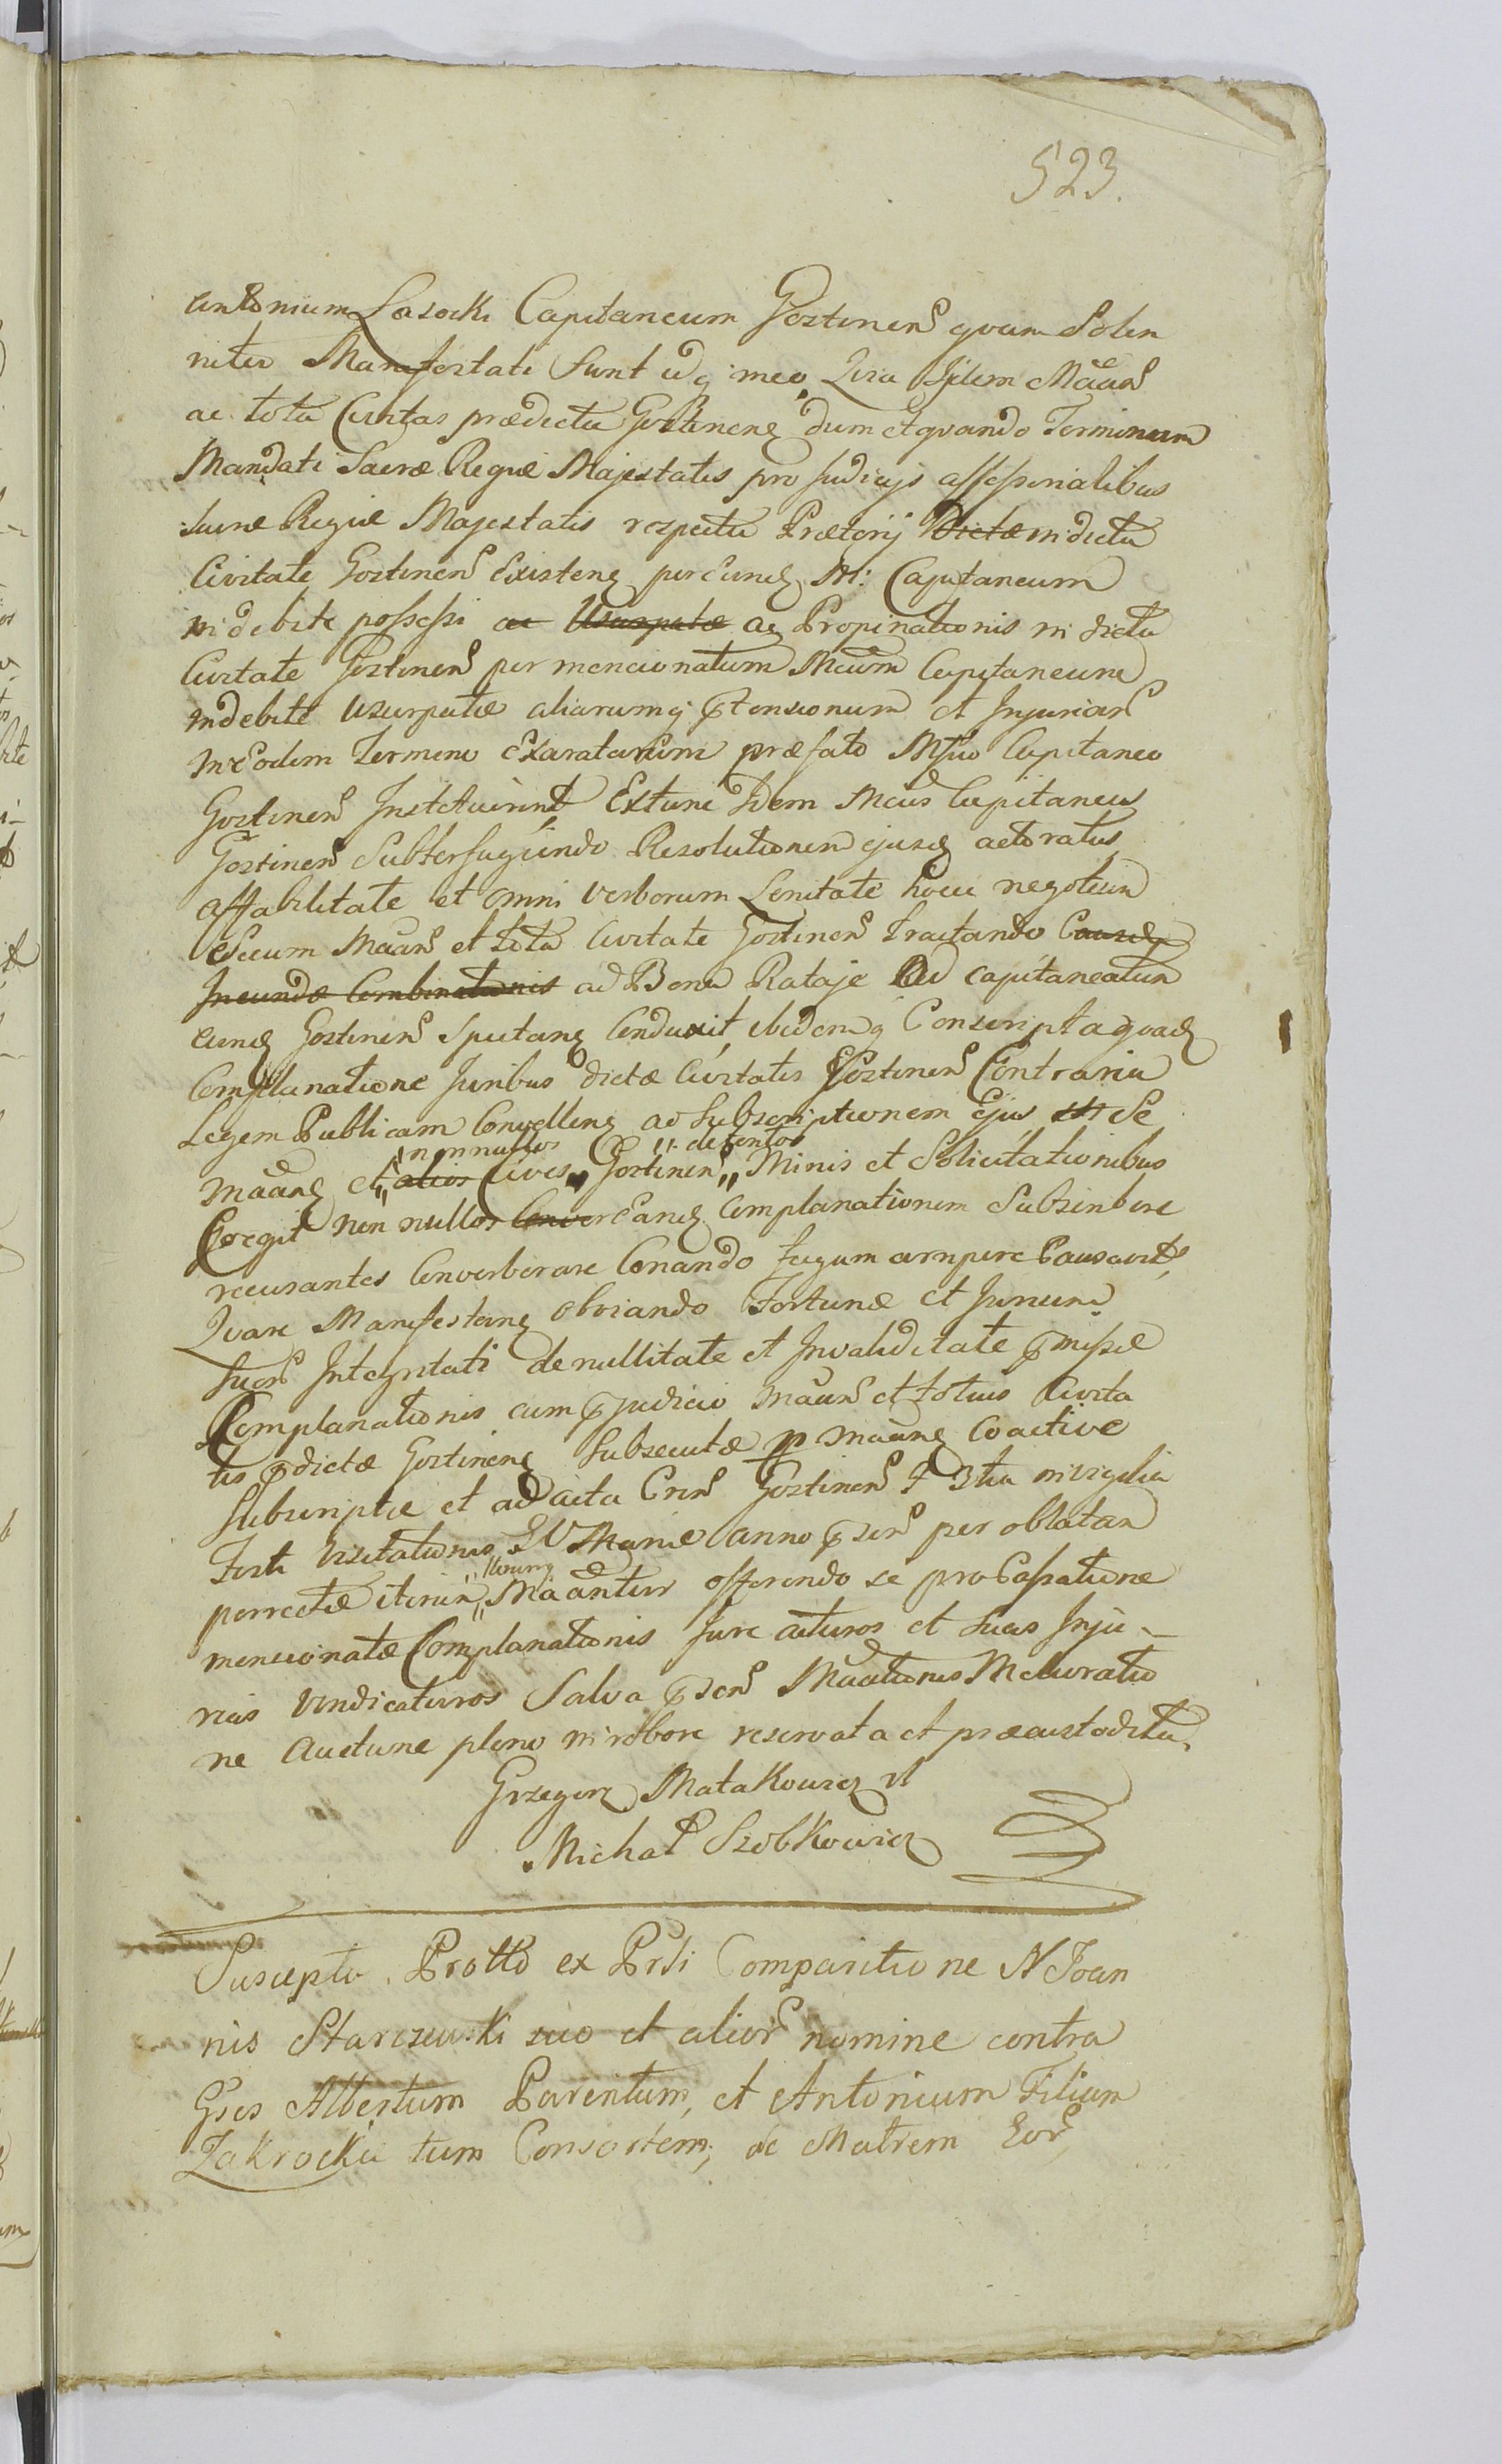 523.
antonium Lasocki Capitaneum Gostinen̄ quam Solen
niter Manifestati Sunt idq; meo Quia Iidem Maan̄
ac tota Civitas prædicta Gostinenẽ dum et quando Terminum
Mandati Sacræ Regiæ Majestatis pro Judicijs assessorialibus
Sacræ Regiæ Majestatis respectu Prætorij Dictæ in dicta
Civitate Gostinen̄ Existenẽ per Eundẽ M: Capitaneum
indebite possessi ac Usurpatæ ac Propinationis in dicta
Civitate Gostinen̄ per mencionatum Mcum Capitaneum
indebite usurpatæ aliarumq; ptensionum et Injuriar̄
in Eodem Termino Exaratarum præfato Mfico Capitaneo
Gostinen̄ Instituerint Extunc Idem Mcus Capitaneus
Gostinen̄ Subterfugiendo Resolutionem ejusd actoratus
affabilitate et omni verborum Lenitate hocce negotium
Secum Maan̄ et tota Civitate Gostinen̄ Tractando
Ineundæ Combinationis ad Bona Rataje ad Capitaneatum
eund Gostinen̄ Spectanẽ Conduxit, ibidemq; Conscripta quad
Complanatione Juribus dictæ Civitatis Gostinen̄ Contraria
Legem Publicam Convellenẽ ad Subscriptionem Ejus Se
nonnullos „detentos
Maanẽ et „alios Cives„ Gostinen̄ „ Minis et Solicitationibus
Coegit non nullos Conver Eand Complanationem Subscribere
recusantes Converberare Conando fugam arripere Causavit,
Quare Manifestanẽ obviando Fortunæ et Jurium
Suor̄ Integritati de nullitate et Invaliditate pmissæ
Complanationis cum pjudicio Maan̄ et totius Civita
tis pdictæ Gostinenẽ Subsecutæ p Maanẽ Coactive
Subscriptæ et ad acta Cren̄ Gostinen̄ F 3tia in vigilia
Festi Visitationis BV Mariæ anno psen̄ per oblatam
porrectæ iterum „ Maantur offerendo se pro Cassatione
mencionatæ Complanationis Jure acturos et Suas Inju-
rias vindicaturos Salva psen̄ Maationis Melioratio
ne Auctione pleno in robore reservata et præcustodita.
Grzegorz Matakowicz
Michał Szobkowicz
Suscepta Protto ex Prsti Comparitione N Joan
nis Starczewski suo et alior̄ nomine contra
Gsos Albertum Parentem, et Antonium Filium
Zakrockie tum Consortem, ac Matrem Eor̄